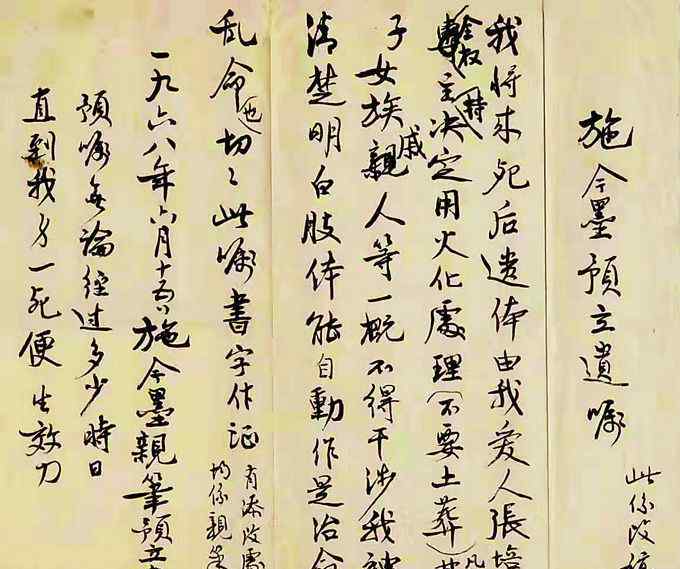 施今墨預立遺囑
此係改
我将来死后遺体由我爱人張培
全权主持决定用火化處理(不要土葬)凡
子女族親戚人等一概不得干涉我神
清楚明白肢体能自動作是治命
乱命也切々此囑書字作证
有添改處
均係親筆
一九六八年六月十五施今墨親筆預立
預囑無論經过多少時日
直到我方一死便生效力